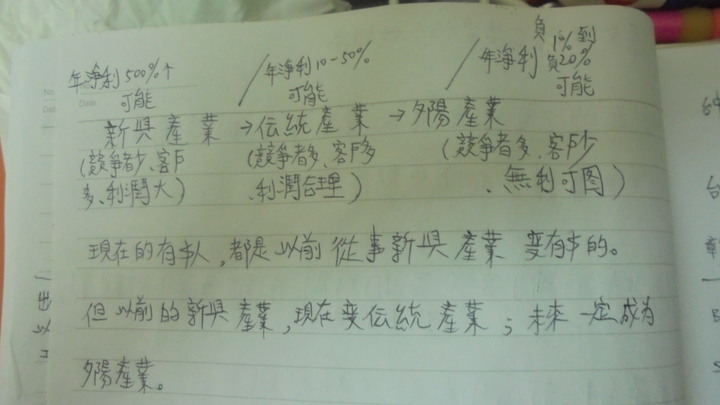 年淨利500%↑ / 年淨利10-50% / 年淨利負1%到負20%
可能 可能 可能
新興產業 → 伝統產業 → 夕陽產業
(競爭者少、客戶 (競爭者多、客戶多 (競爭者多、客戶少
多、利潤大) 、利潤合理) 、無利可图)
現在的有本人,都是以前從事新興產業 变有本的。
但以前的新興產業,現在变伝統產業;未來一定成为
夕陽產業。